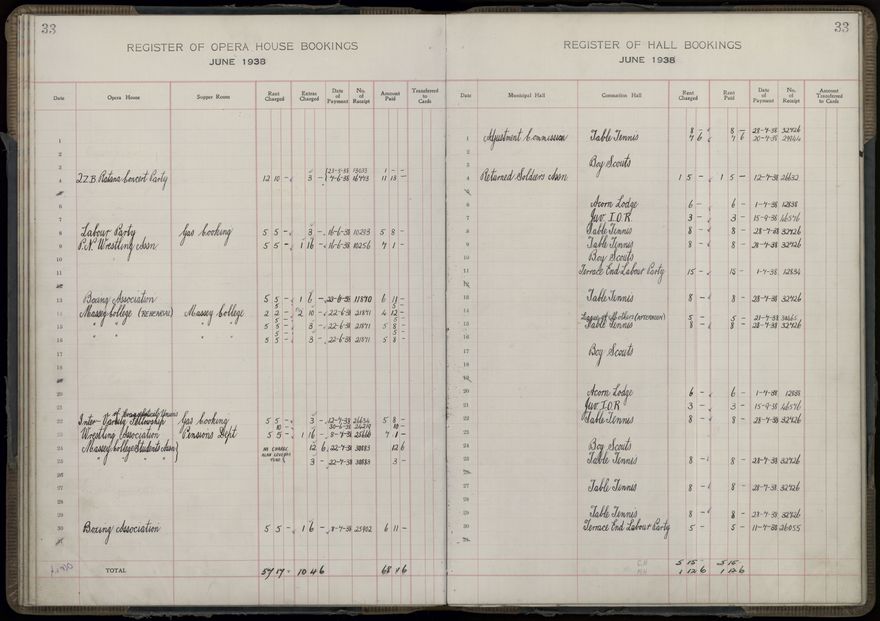 33
REGISTER OF OPERA HOUSE BOOKINGS
JUNE 1938
Date Opera House Supper Room Rent Charged Extras Charged Date of Payment No. of Receipt Amount Paid Transferred to Cards
1
2
3
4 2.Z.B. Ratana Concert Party 12 10 - 3 - 7-6-38 11 13 -
5
6
7
8 Labour Party Gas booking 5 5 - 3 - 16-6-38 10293 5 8 -
9 P.N. Wrestling Assn 5 5 - 1 16 - 16-6-38 10256 7 1 -
10
11
12
13 Boxing Association 5 5 - 1 6 - 23-6-38 11870 6 11 -
14 Massey College (REHEARSAL) Massey College 2 2 - 2 10 - 22-6-38 21871 4 12 -
15 " " " " 5 5 - 3 - 22-6-38 21871 5 8 -
16 " " " " 5 5 - 3 - 22-6-38 21871 5 8 -
17
18
19
20
21
22 Inter-Varsity Fellowship of Evangelical Unions Gas booking 5 5 - 3 - 12-7-38 26634 5 8 -
23 Wrestling Association Pensions Dept 5 5 - 1 16 - 8-7-38 25666 7 1 -
24 Massey College Students Assn NO CHARGE 12 6 22-7-38 30883 12 6
25 " " " 3 - 22-7-38 30883 3 -
26
27
28
29
30 Boxing Association 5 5 - 1 6 - 8-7-38 25902 6 11 -
31
TOTAL 57 17 - 10 4 6 68 1 6
33
REGISTER OF HALL BOOKINGS
JUNE 1938
Date Municipal Hall Coronation Hall Rent Charged Rent Paid Date of Payment No. of Receipt Amount Transferred to Cards
1 Adjustment Commission Table Tennis 8 - 8 - 28-7-38 32426
7 6 7 6 20-7-38
2
3 Boy Scouts
4 Returned Soldiers Assn 1 5 - 1 5 - 12-7-38 26632
5
6 Acorn Lodge 6 - 6 - 1-7-38 12838
7 Juv. I.O.R. 3 - 3 - 15-9-38 46546
8 Table Tennis 8 - 8 - 28-7-38 32426
9 Table Tennis 8 - 8 - 28-7-38 32426
10 Boy Scouts
11 Terrace End Labour Party 15 - 15 - 1-7-38 12834
12
13 Table Tennis 8 - 8 - 28-7-38 32426
14
15 League of Mothers (AFTERNOON) 5 - 5 - 21-7-38
Table Tennis 8 - 8 - 28-7-38 32426
16
17 Boy Scouts
18
19
20 Acorn Lodge 6 - 6 - 1-7-38 12838
21 Juv. I.O.R. 3 - 3 - 15-9-38 46546
22 Table Tennis 8 - 8 - 28-7-38 32426
23
24 Boy Scouts
25 Table Tennis 8 - 8 - 28-7-38 32426
26
27 Table Tennis 8 - 8 - 28-7-38 32426
28
29 Table Tennis 8 - 8 - 28-7-38 32426
30 Terrace End Labour Party 5 - 5 - 11-7-38 26055
31
C.H. 5 15 - 5 15 -
M.H. 1 12 6 1 12 6